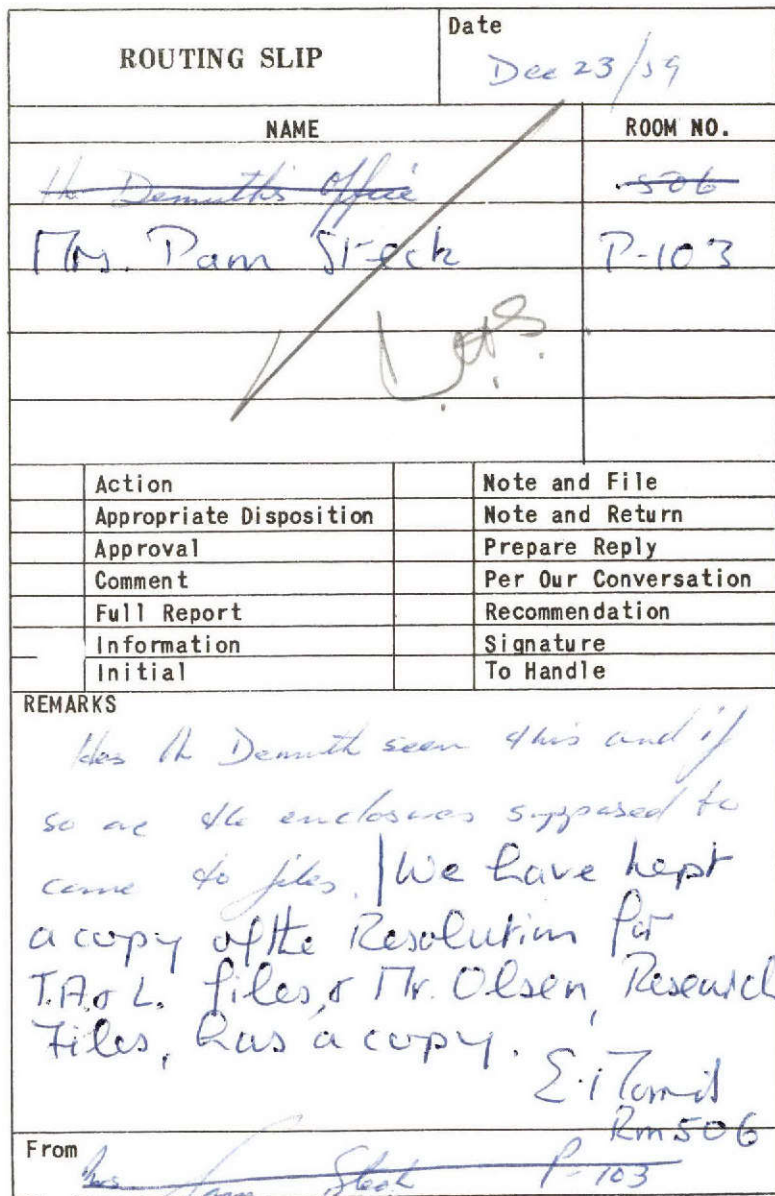 ROUTING SLIP
Date
Dec 23/59
NAME
ROOM NO.
Mr Demuth's Office
506
Mrs. Pam Steck
P-103
Action
Note and File
Appropriate Disposition
Note and Return
Approval
Prepare Reply
Comment
Per Our Conversation
Full Report
Recommendation
Information
Signature
Initial
To Handle
REMARKS
Has Mr Demuth seen this and if
so are the enclosures supposed to
come to files. We have kept
a copy of the Resolution for
T.A & L. files, & Mr. Olsen, Research
Files, has a copy.
Rm 506
From
Mrs Pam Steck P-103